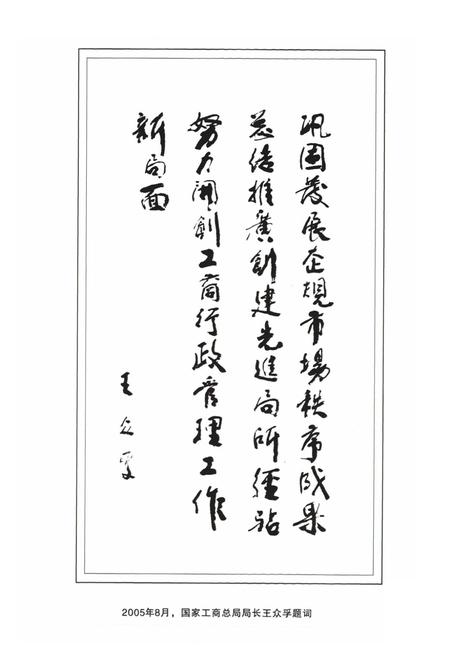 巩固發展規市場秩序成果
总結推廣創建先進局所經验
努力開創工商行政管理工作
新局面
王众孚
2005年8月，国家工商总局局长王众孚题词